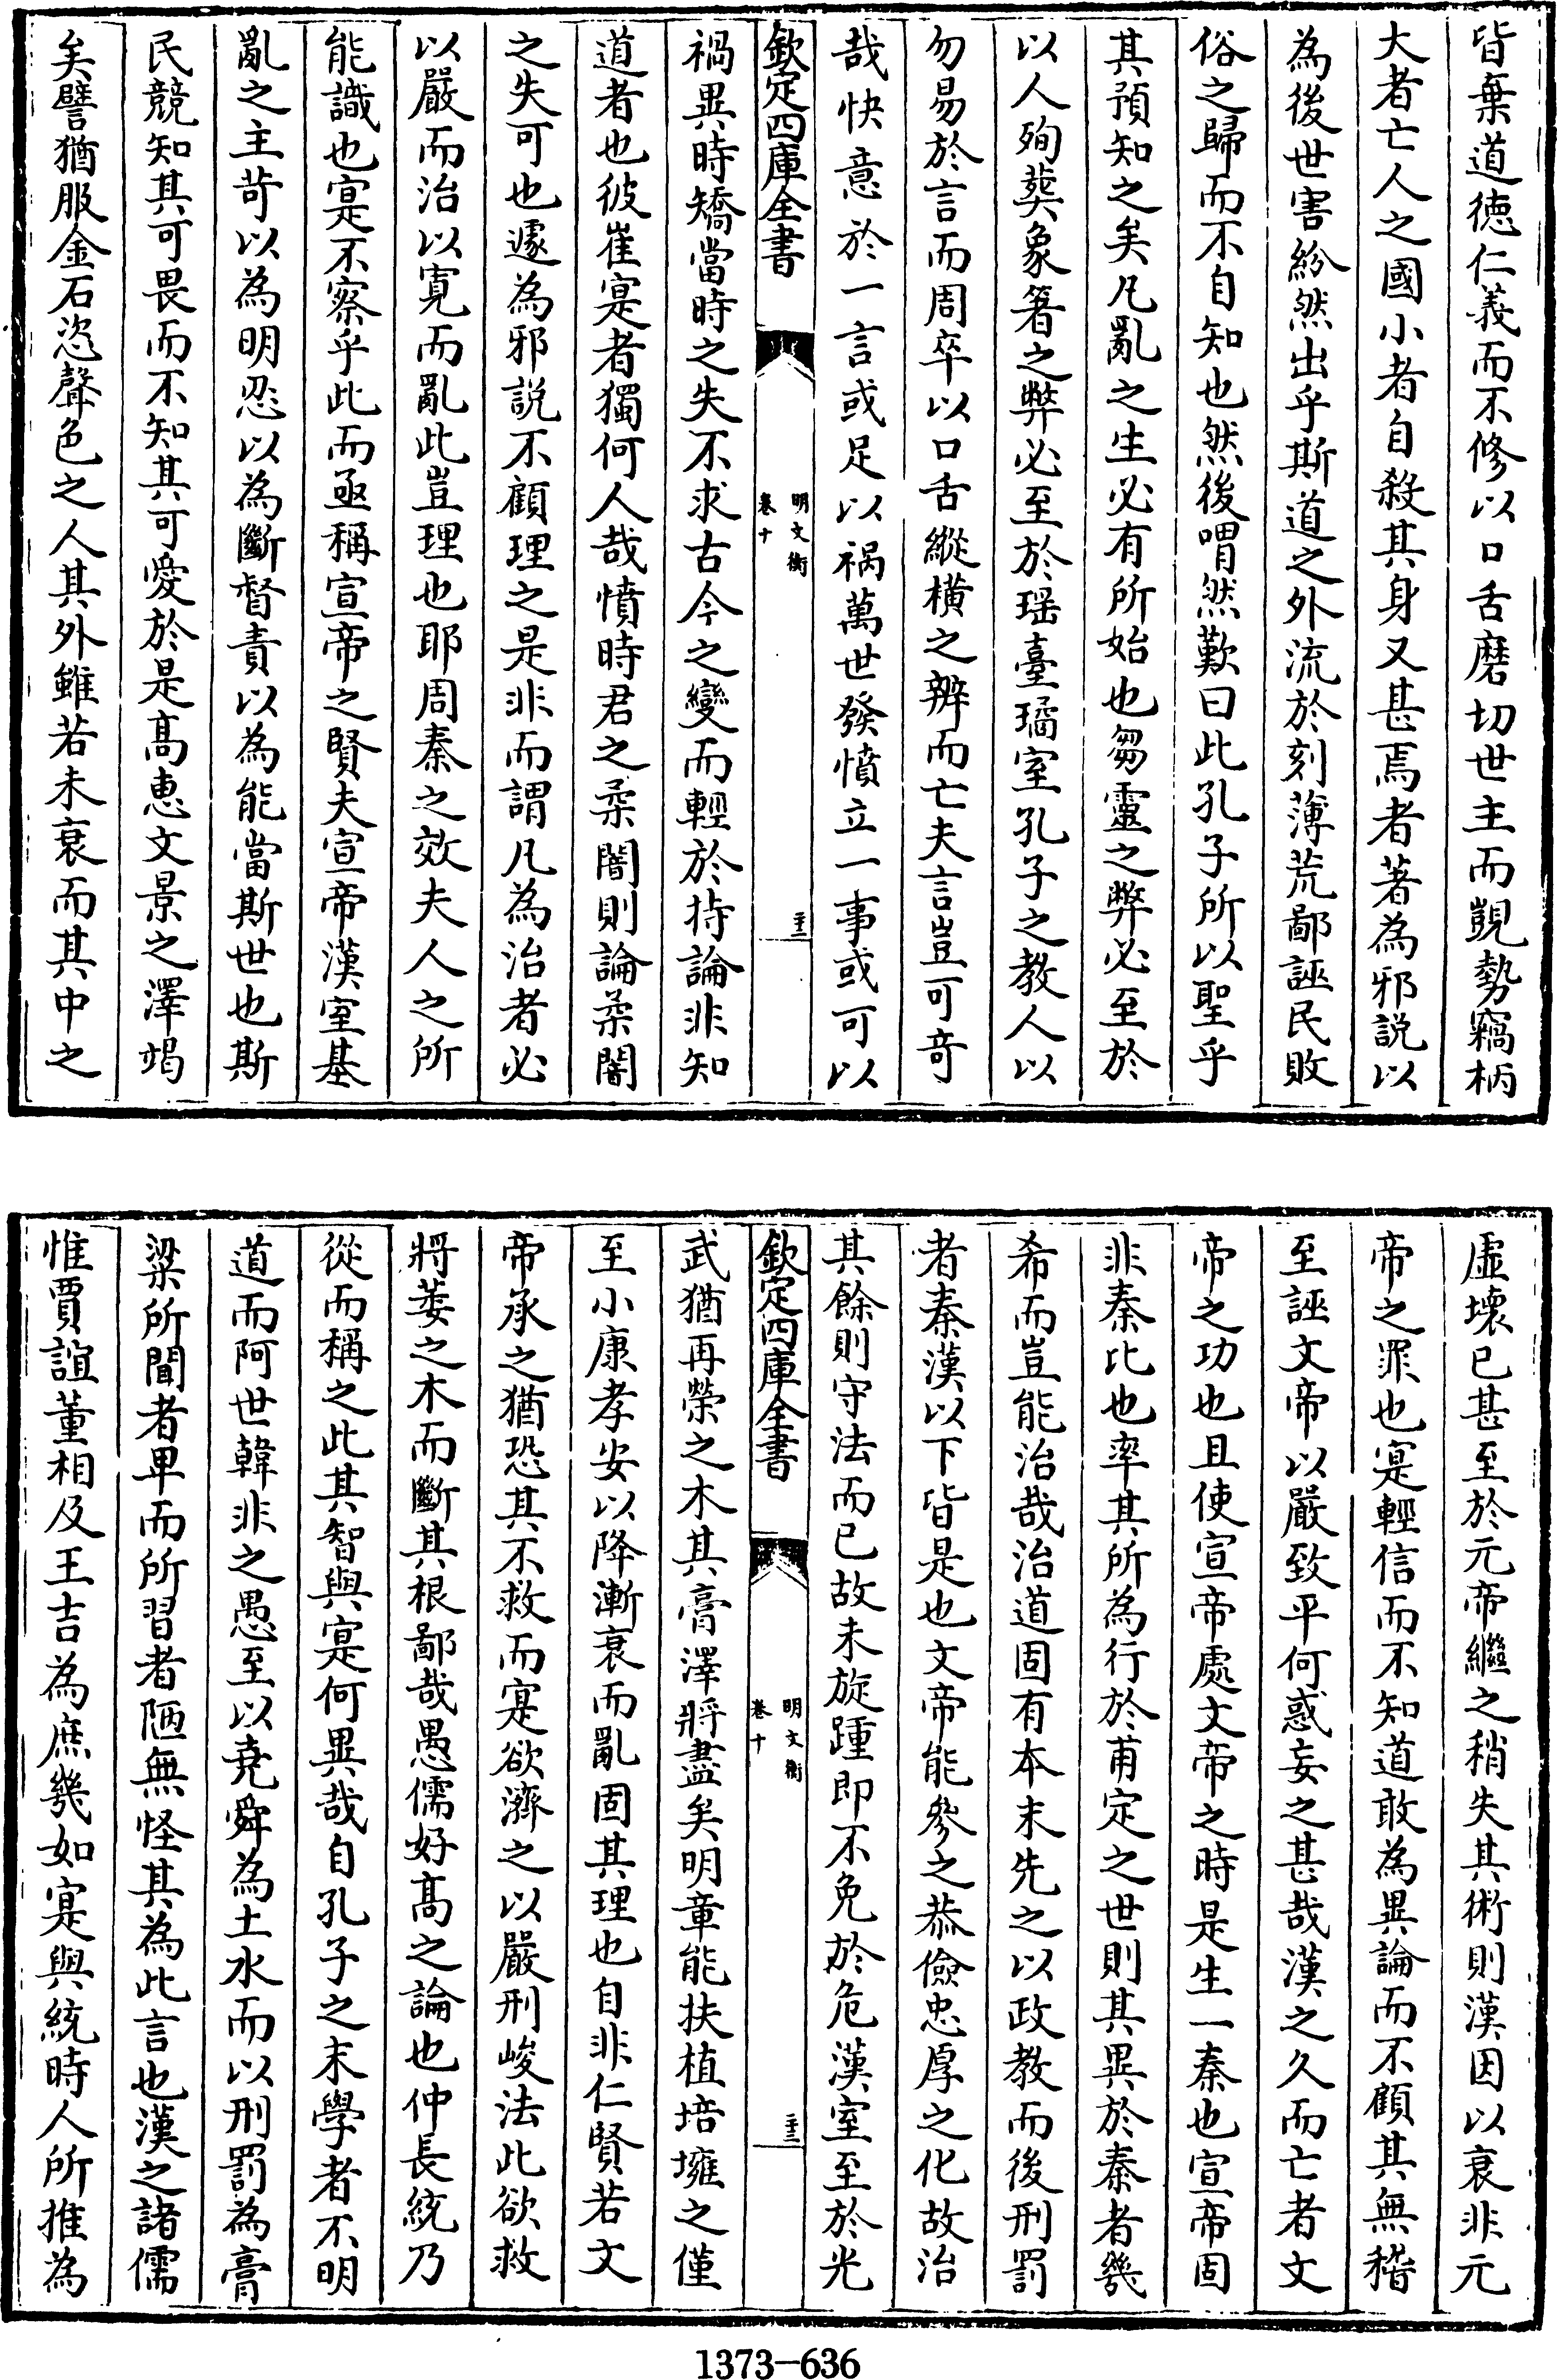 皆棄道徳仁義而不修以口舌磨切世主而覬勢竊柄
大者亡人之國小者自殺其身又甚焉者著為邪説以
為後世害紛然出乎斯道之外流於刻薄荒鄙誣民敗
俗之歸而不自知也然後喟然歎曰此孔子所以聖乎
其預知之矣凡亂之生必有所始也芻靈之弊必至於
以人殉葬象箸之弊必至於瑶臺璚室孔子之教人以
勿易於言而周卒以口舌縱横之辨而亡夫言豈可奇
哉快意於一言或足以禍萬世發憤立一事或可以
欽定四庫全書
明文衡
卷十
二十二
禍異時矯當時之失不求古今之變而輕於持論非知
道者也彼崔寔者獨何人哉憤時君之柔闇則論柔闇
之失可也遽為邪説不顧理之是非而謂凡為治者必
以嚴而治以寛而亂此豈理也耶周秦之效夫人之所
能識也寔不察乎此而亟稱宣帝之賢夫宣帝漢室基
亂之主苛以為明忍以為斷督責以為能當斯世也斯
民競知其可畏而不知其可愛於是髙惠文景之澤竭
矣譬猶服金石恣聲色之人其外雖若未衰而其中之
虚壊已甚至於元帝繼之稍失其術則漢因以衰非元
帝之罪也寔輕信而不知道敢為異論而不顧其無稽
至誣文帝以嚴致平何惑妄之甚哉漢之久而亡者文
帝之功也且使宣帝處文帝之時是生一秦也宣帝固
非秦比也率其所為行於甫定之世則其異於秦者幾
希而豈能治哉治道固有本末先之以政教而後刑罰
者秦漢以下皆是也文帝能參之恭儉忠厚之化故治
其餘則守法而已故未旋踵即不免於危漢室至於光
欽定四庫全書
明文衡
卷十
二十三
武猶再榮之木其膏澤將盡矣明章能扶植培壅之僅
至小康孝安以降漸衰而亂固其理也自非仁賢若文
帝承之猶恐其不救而寔欲濟之以嚴刑峻法此欲救
將萎之木而斷其根鄙哉愚儒好髙之論也仲長統乃
從而稱之此其智與寔何異哉自孔子之末學者不明
道而阿世韓非之愚至以堯舜為土水而以刑罰為膏
粱所聞者卑而所習者陋無怪其為此言也漢之諸儒
惟賈誼董相及王吉為庶幾如寔與統時人所推為
1373—636